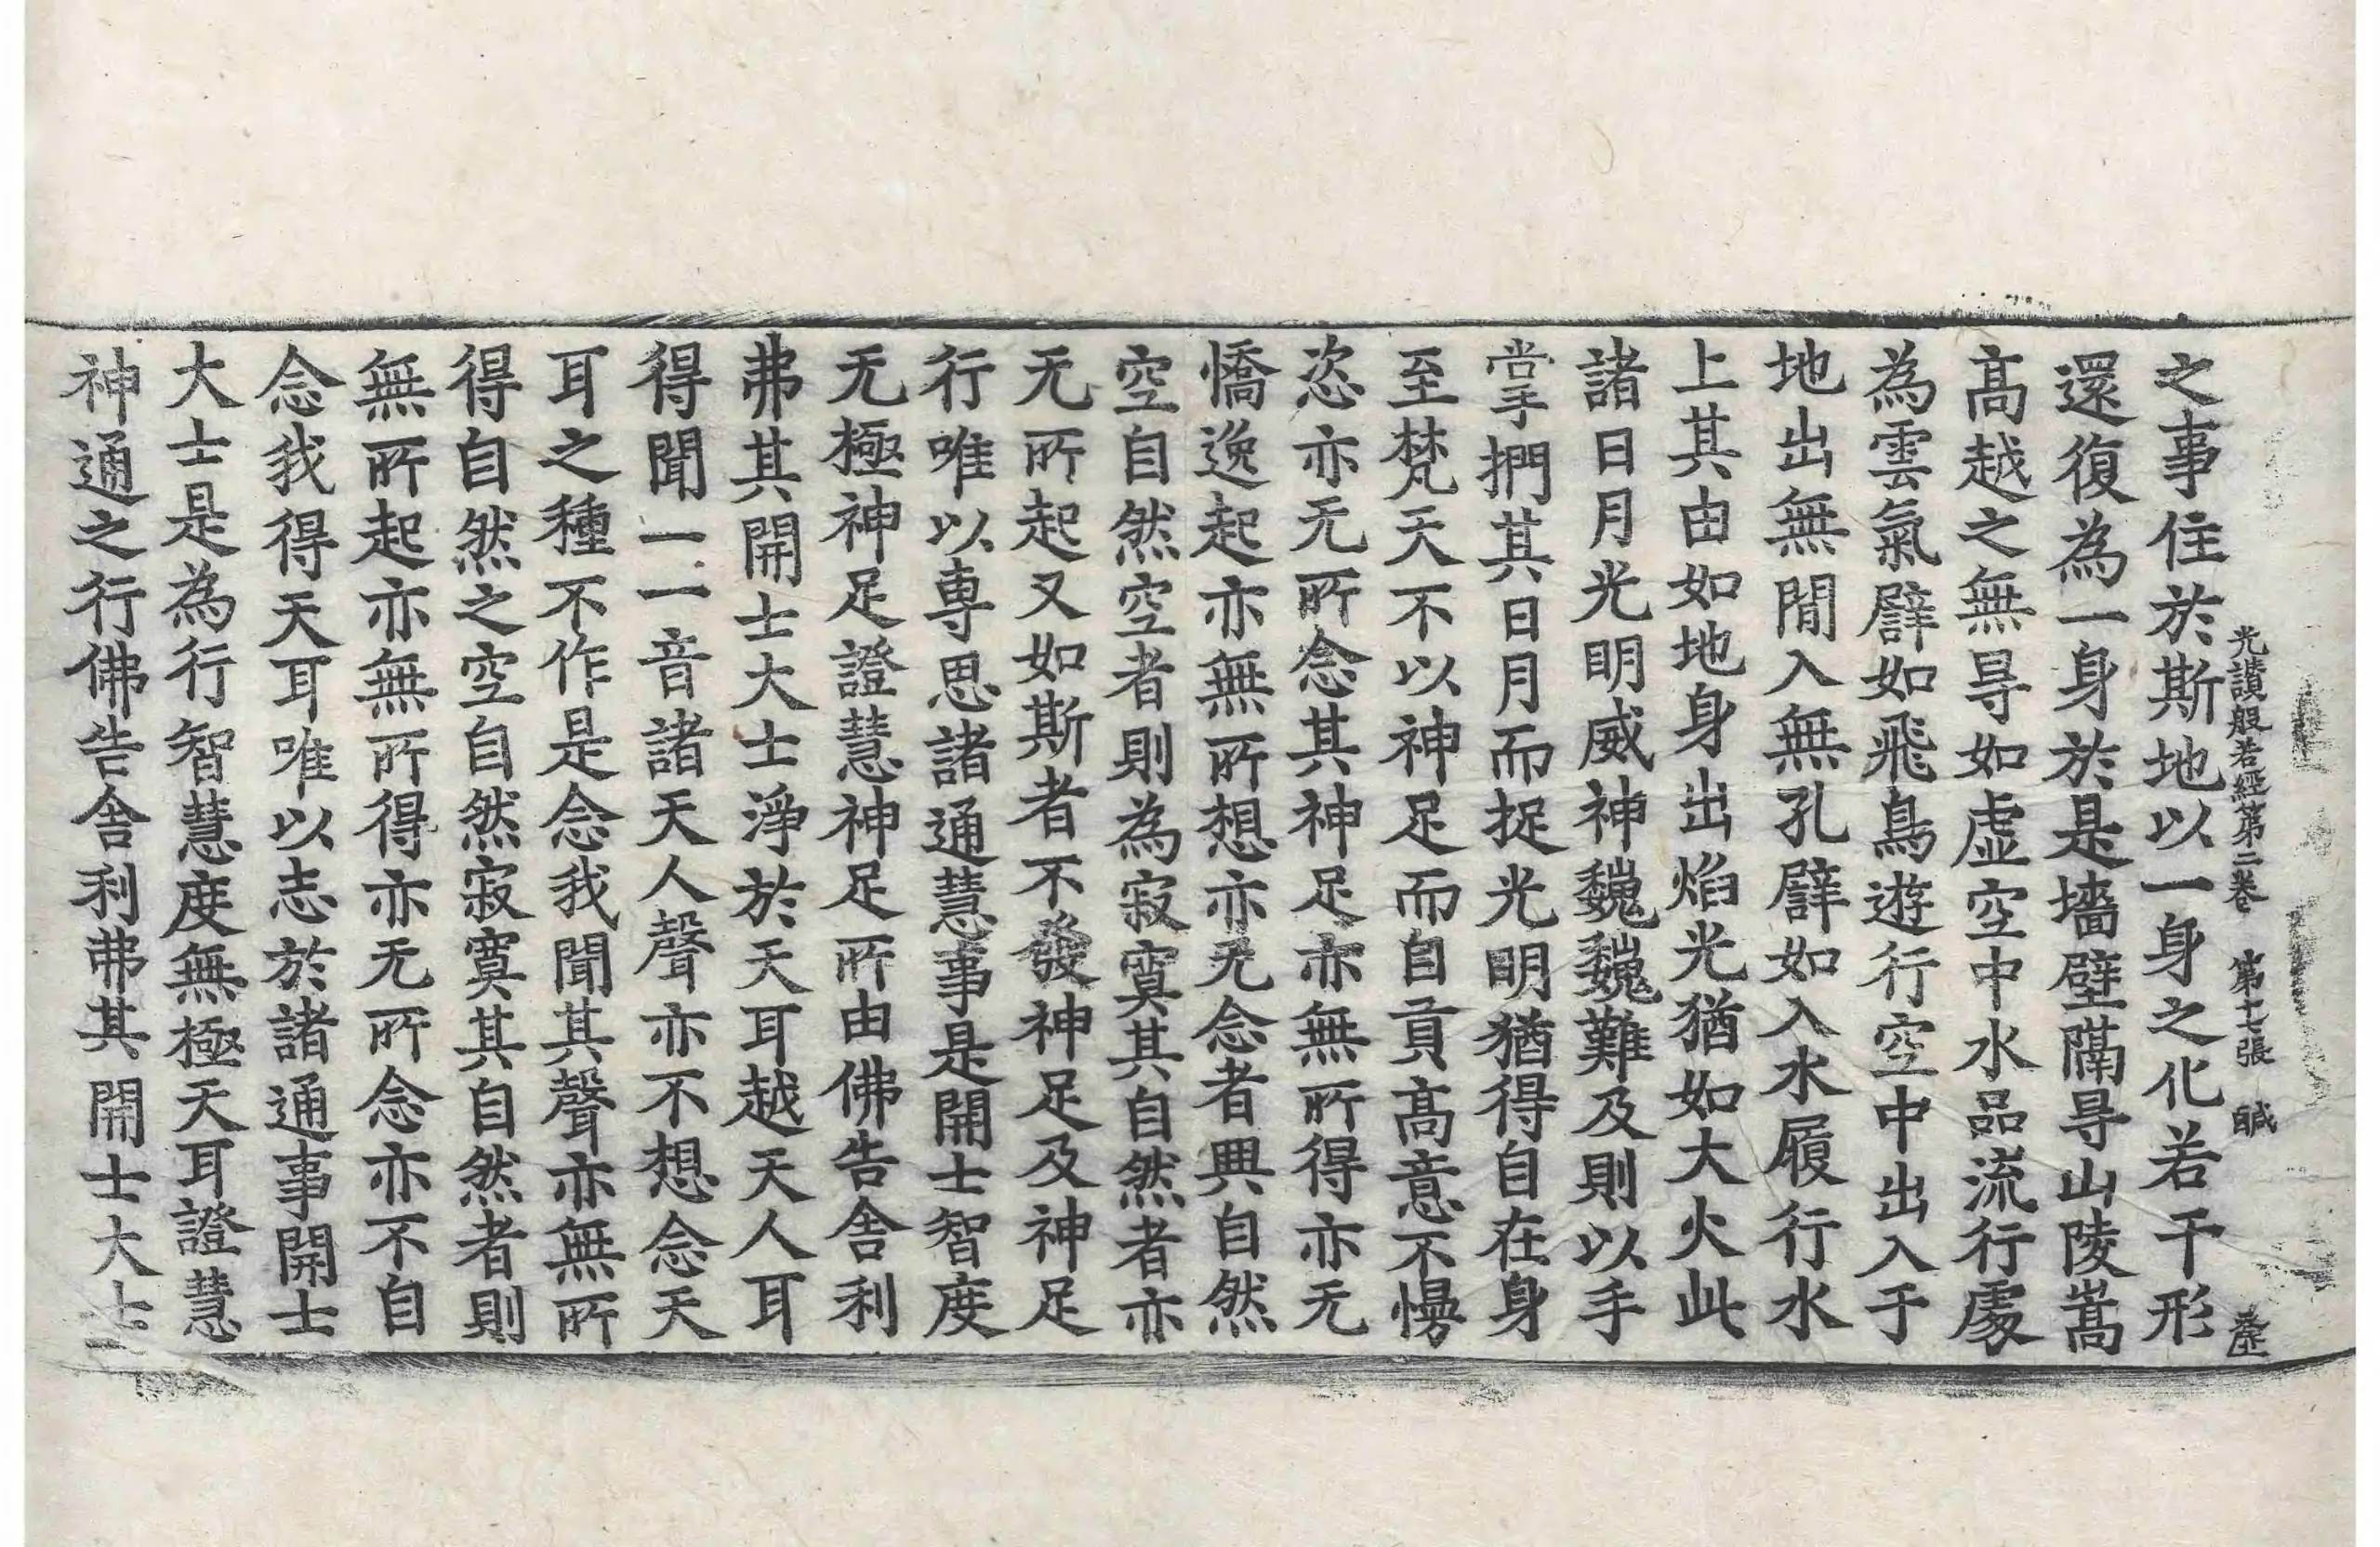 光讃般若經第二巻　第十七張　醎
之事住於斯地以一身之化若干形
還復為一身於是墻壁隔㝵山陵嵩
髙越之無㝵如虚空中水品流行處
為雲氣譬如飛鳥遊行空中出入于
地出無閒入無孔譬如入水履行水
上其由如地身出焰光猶如大火此
諸日月光明威神巍巍難及則以手
掌捫其日月而捉光明猶得自在身
至梵天不以神足而自貢髙意不慢
恣亦无所念其神足亦無所得亦无
憍逸起亦無所想亦无念者興自然
空自然空者則為寂寞其自然者亦
无所起又如斯者不發神足及神足
行唯以專思諸通慧事是開士智度
无極神足證慧神足所由佛告舎利
弗其開士大士淨於天耳越天人耳
得聞一一音諸天人聲亦不想念天
耳之種不作是念我聞其聲亦無所
得自然之空自然寂寞其自然者則
無所起亦無所得亦无所念亦不自
念我得天耳唯以志於諸通事開士
大士是為行智慧度無極天耳證慧
神通之行佛告舎利弗其開士大士